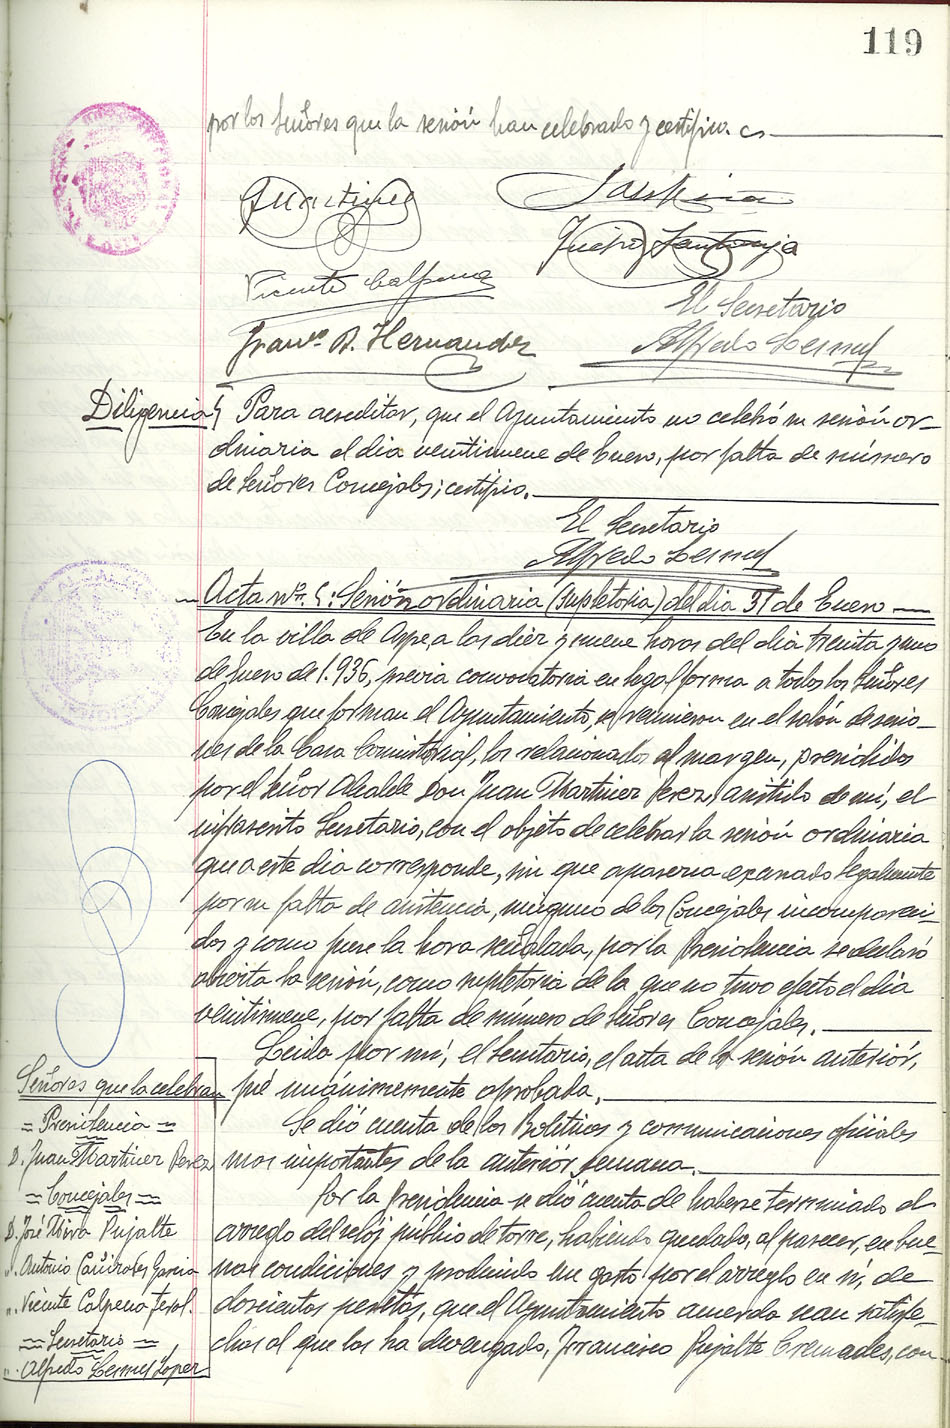 119
por los Señores que la sesión han celebrado y certifico.
J. Martinez
Vicente Calpena
El Secretario
Franco. A. Hernandez
Alfredo Lesmes
Diligencia} Para acreditar, que el Ayuntamiento no celebró su sesión or-
dinaria el dia veintinueve de Enero, por falta de número
de Señores Concejales; certifico.
El Secretario
Alfredo Lesmes
Acta nº. 5: Sesión ordinaria (supletoria) del dia 31 de Enero
En la villa de Aspe, a las diez y nueve horas del dia treinta y uno
de Enero de 1.936, previa convocatoria en legal forma a todos los Señores
Concejales que forman el Ayuntamiento, se reunieron en el salón de sesio-
nes de la Casa Consistorial, los relacionados al margen, presididos
por el Señor Alcalde Don Juan Martinez Perez, asistido de mí, el
infrascrito Secretario, con el objeto de celebrar la sesión ordinaria
que a este dia corresponde, sin que aparezca excusado legalmente
por su falta de asistencia, ninguno de los Concejales incompareci-
dos y como fuese la hora señalada, por la Presidencia se declaró
abierta la sesión, como supletoria de la que no tuvo efecto el dia
veintinueve, por falta de número de Señores Concejales.
Leida por mí, el Secretario, el acta de la sesión anteriór,
fué unánimemente aprobada.
Se dió cuenta de los Boletines y comunicaciones oficiales
mas importantes de la anteriór semana.
Por la Presidencia se dió cuenta de haberse terminado el
arreglo del reloj público de torre, habiendo quedado, al parecer, en bue-
nas condiciones y producido un gasto por el arreglo en sí, de
doscientas pesetas, que el Ayuntamiento acuerda sean satisfe-
chas al que las ha devengado, Francisco Pujalte Cremades, con
Señores que la celebran
= Presidencia =
D. Juan Martinez Perez
= Concejales =
D. José Mira Pujalte
". Antonio Cañizares Garcia
". Vicente Calpena
= Secretario =
". Alfredo Lesmes Lopez